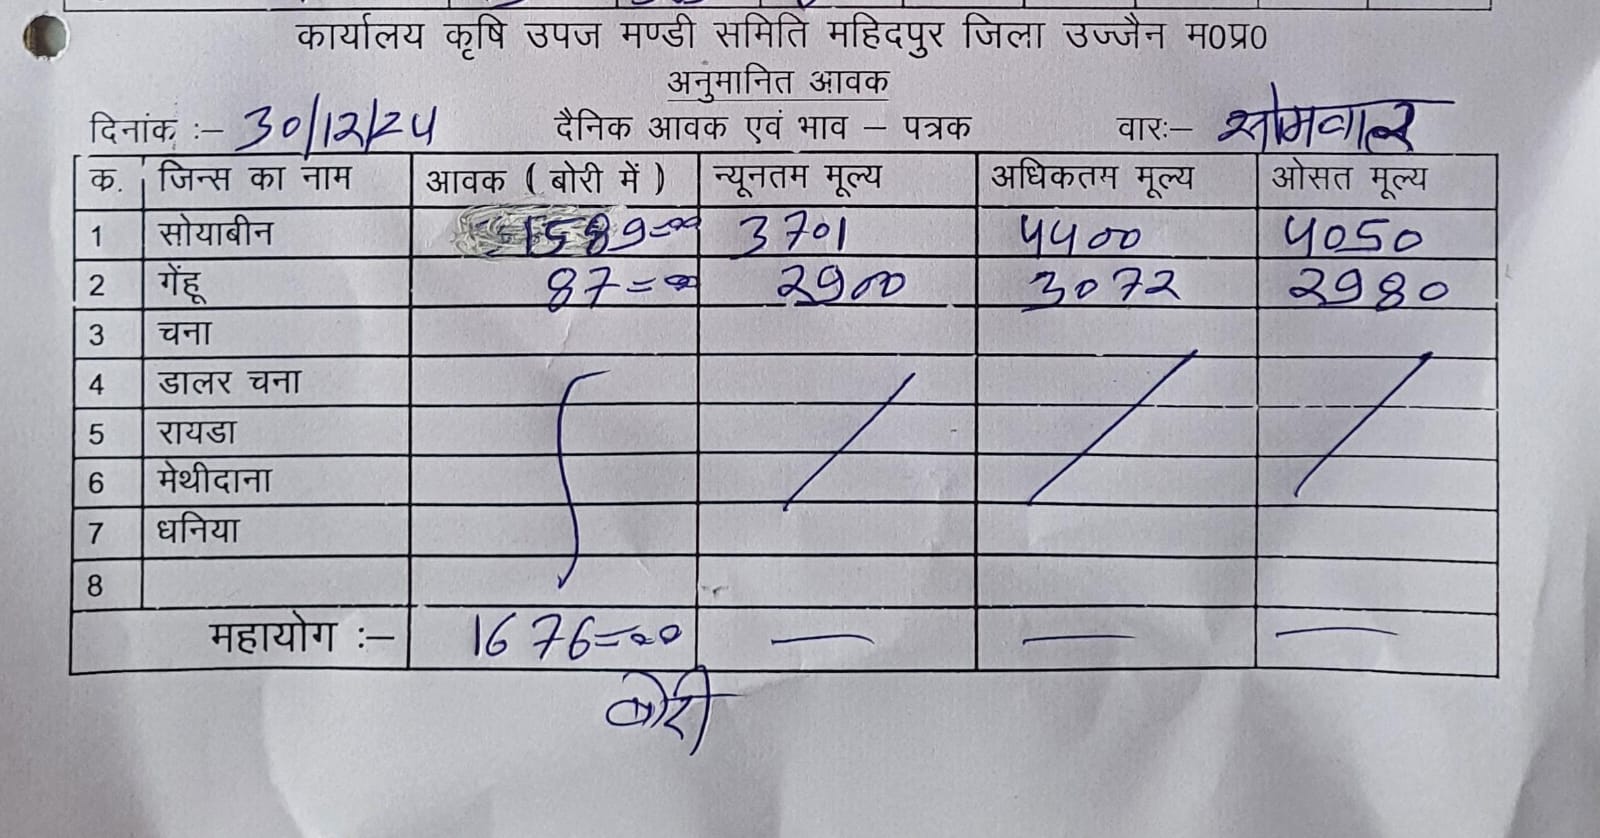 कार्यालय कृषि उपज मण्डी समिति महिदपुर जिला उज्जैन म0प्र0
अनुमानित आवक
दिनांक :– 30/12/24 दैनिक आवक एवं भाव – पत्रक वारः– सोमवार
क. जिन्स का नाम आवक ( बोरी में ) न्यूनतम मूल्य अधिकतम मूल्य ओसत मूल्य
1 सोयाबीन 1589=00 3701 4400 4050
2 गेंहू 87=00 2900 3072 2980
3 चना
4 डालर चना
5 रायडा
6 मेथीदाना
7 धनिया
8
महायोग :– 1676=00 — — —
बोरी